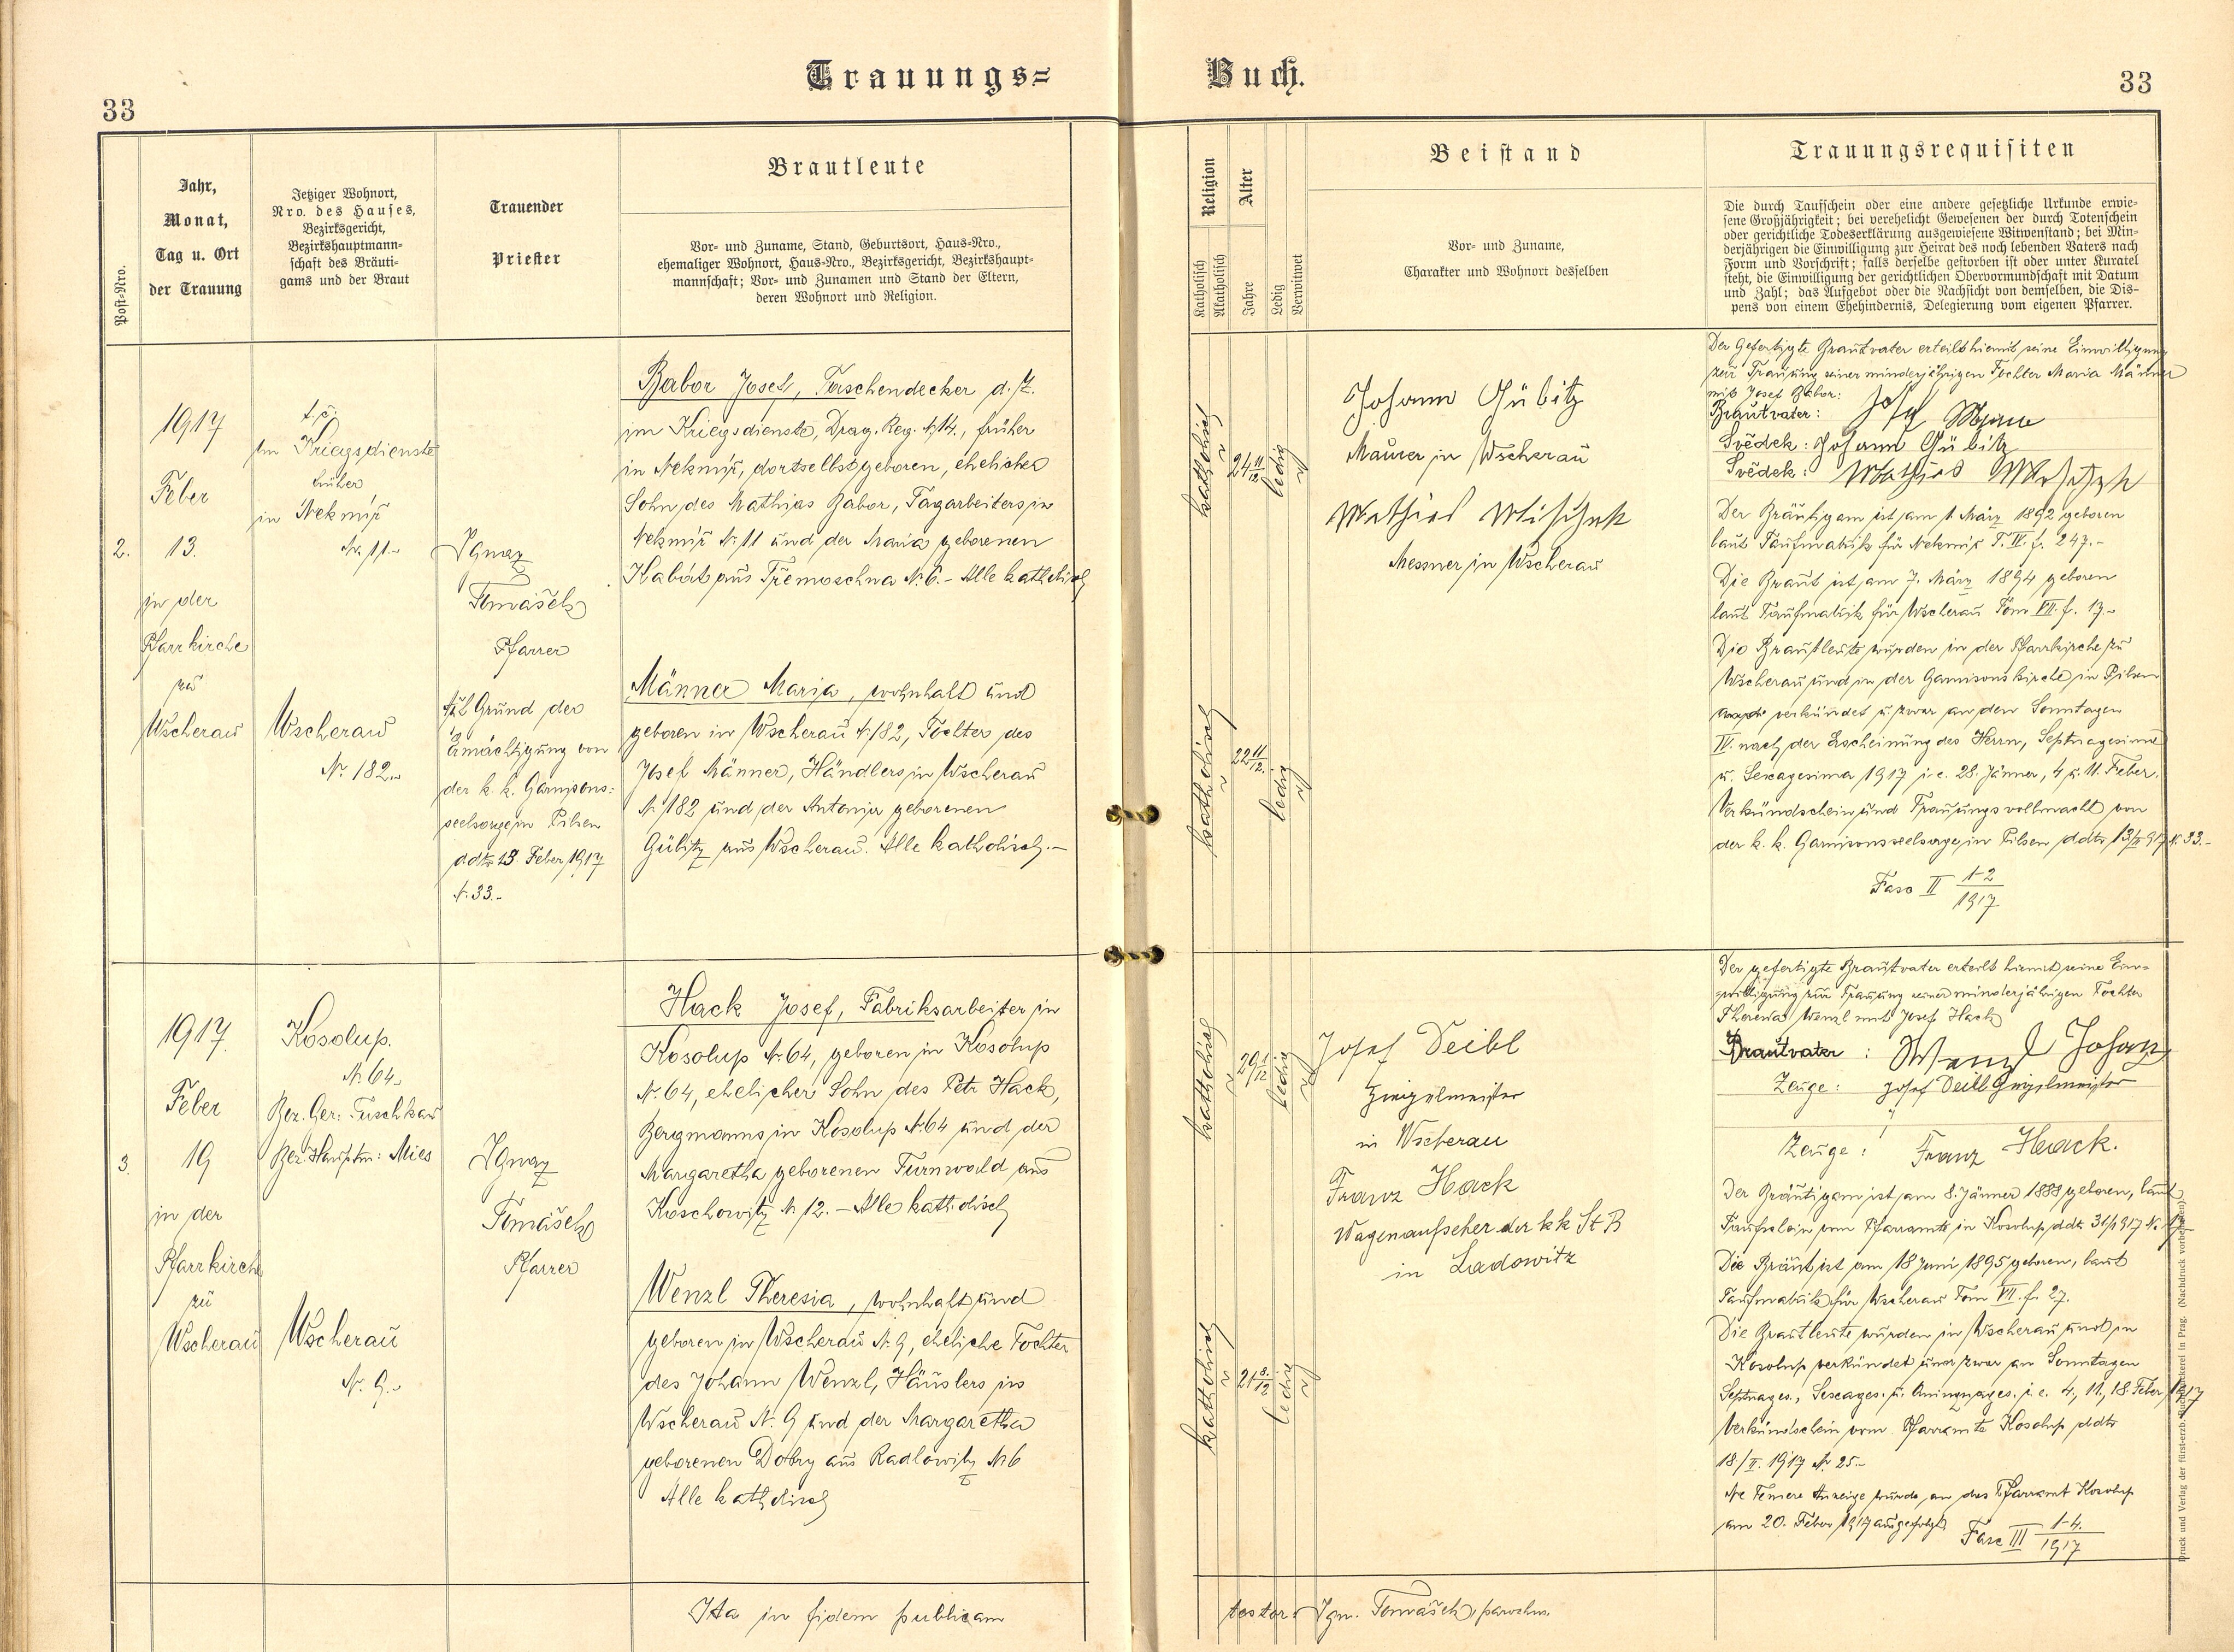 Trauungs=
Buch.
33
33
Post-Nro.
Jahr,
Monat,
Tag u. Ort
der Trauung
Jetziger Wohnort,
Nro. des Hauses,
Bezirksgericht,
Bezirkshauptmann-
schaft des Bräuti-
gams und der Braut
Trauender
Priester
Brautleute
Vor- und Zuname, Stand, Geburtsort, Haus-Nro.,
ehemaliger Wohnort, Haus-Nro., Bezirksgericht, Bezirkshaupt-
mannschaft; Vor- und Zunamen und Stand der Eltern,
deren Wohnort und Religion.
Religion
Katholisch
Akatholisch
Alter
Jahre
Ledig
Verwitwet
Beistand
Vor- und Zuname,
Charakter und Wohnort desselben
Trauungsrequisiten
Die durch Taufschein oder eine andere gesetzliche Urkunde erwie-
sene Großjährigkeit; bei verehelicht Gewesenen der durch Totenschein
oder gerichtliche Todeserklärung ausgewiesene Witwenstand; bei Min-
derjährigen die Einwilligung zur Heirat des noch lebenden Vaters nach
Form und Vorschrift; falls derselbe gestorben ist oder unter Kuratel
steht, die Einwilligung der gerichtlichen Obervormundschaft mit Datum
und Zahl; das Aufgebot oder die Nachsicht von demselben, die Dis-
pens von einem Ehehindernis, Delegierung vom eigenen Pfarrer.
2.
1917
Feber
13.
in der
Pfarrkirche
zu
Wscherau
im Kriegsdienste
früher
in Nekmíř
Nr. 11.-
Wscherau
Nr. 182.-
Ignaz
Tomášek
Pfarrer
auf Grund der
Ermächtigung von
der k. k. Garnisons:
seelsorge in Pilsen
ddto 13. Feber 1917
N. 33.-
Babor Josef, Taschendecker d. Z.
im Kriegsdienste, Drag. Reg. N 14., früher
in Nekmíř, dortselbst geboren, ehelicher
Sohn des Mathias Babor, Tagarbeiters in
Nekmíř Nr. 11 und der Maria geborenen
Kabát aus Třemoschna N. 6. - Alle katholisch
Männer Maria, wohnhaft und
geboren in Wscherau N. 182, Tochter des
Josef Männer, Händlers in Wscherau
N. 182 und der Antonia geborenen
Gübitz aus Wscherau. Alle katholisch.-
katholisch
24 11/12
ledig
katholisch
22 11/12
ledig
Johann Gübitz
Maurer in Wscherau
Mathias
Messner in Wscherau
Der Gefertigte Brautvater erteilt hiemit seine Einwilligung
zur Trauung seiner minderjährigen Tochter Maria Männer
mit Josef Babor:
Brautvater: Josef
Svědek: Johann Gübitz
Svědek: Mathias
Der Bräutigam ist am 1. März 1892 geboren
laut Taufmatrik für Nekmíř T. IV. f. 247.-
Die Braut ist am 7. März 1894 geboren
laut Taufmatrik für Wscherau Tom VII. f. 17.-
Die Brautleute wurden in der Pfarrkirche zu
Wscherau und in der Garnisonskirche in Pilsen
verkündet u. zwar an den Sonntagen
IV. nach der Erscheinung des Herrn, Septuagesima
u. Sexagesima 1917 i. e. 28. Jänner, 4. u. 11. Feber.
Verkündschein und Trauungsvollmacht von
der k. k. Garnisonsseelsorge in Pilsen ddto 13/II 917 N. 33.-
Fasc II 1-2/1917
3.
1917
Feber
19
in der
Pfarrkirche
zu
Wscherau
Kosolup.
Nr. 64.
Bez. Ger: Tuschkau
Bez. Hauptm: Mies
Wscherau
Nr. 9.-
Ignaz
Tomášek
Pfarrer
Hack Josef, Fabriksarbeiter in
Kosolup Nr. 64, geboren in Kosolup
Nr. 64, ehelicher Sohn des Petr Hack,
Bergmanns in Kosolup N. 64 und der
Margaretha geborenen Turnwald aus
Koschowitz N. 12. - Alle katholisch
Wenzl Theresia, wohnhaft und
geboren in Wscherau N. 9, eheliche Tochter
des Johann Wenzl, Häuslers in
Wscherau N. 9 und der Margaretha
geborenen Dobry aus Radlowitz N. 6
Alle katholisch
katholisch
29 1/12
ledig
katholisch
21 8/12
ledig
Josef Deibl
Ziegelmeister
in Wscherau
Franz Hack
Wagenaufseher der kk St B
in Ladowitz
Der gefertigte Brautvater erteilt hiemit seine Ein-
willigung zur Trauung seiner minderjährigen Tochter
Theresia Wenzl mit Josef Hack
Brautvater: Wenzl Johann
Zeuge: Josef Deibl Ziegelmeister
Zeuge: Franz Hack.
Der Bräutigam ist am 8. Jänner 1888 geboren, laut
Taufschein vom Pfarramte in Kosolup ddto 31/I 917 N.
Die Braut ist am 18 Juni 1895 geboren, laut
Taufmatrik für Wscherau Tom VII. f. 27.
Die Brautleute wurden in Wscherau und in
Kosolup verkündet und zwar an Sonntagen
Septuages., Sexages. u. Quinquages. i. e. 4., 11., 18. Feber 1917
Verkündschein vom Pfarramte Kosolup ddto
18./II. 1917 N. 25.-
Ne Temere Anzeige wurde an das Pfarramt Kosolup
am 20. Feber 1917 ausgefolgt.
Fasc III 1-4./1917
Ita in fidem publicam
testor: Ign. Tomášek, parochus.
Druck und Verlag der fürst-erzb. Buchdruckerei in Prag. (Nachdruck vorbehalten)